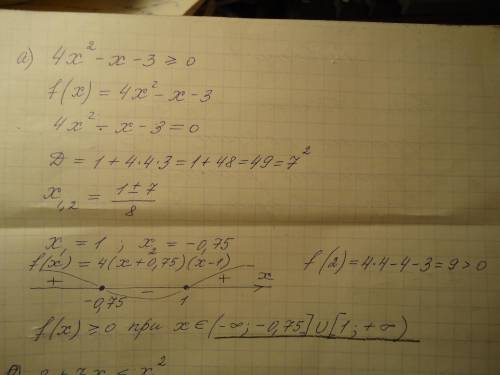 а) 4x² - x - 3 ≥ 0
f(x) = 4x² - x - 3
4x² - x - 3 = 0
D = 1 + 4·4·3 = 1 + 48 = 49 = 7²
x₁,₂ = (1 ± 7)/8
x₁ = 1 ; x₂ = -0,75
f(x) = 4(x + 0,75)(x - 1)
f(2) = 4·4 - 4 - 3 = 9 > 0
+ - + x
-0,75 1
f(x) ≥ 0 при x ∈ (-∞; -0,75] ∪ [1; +∞)